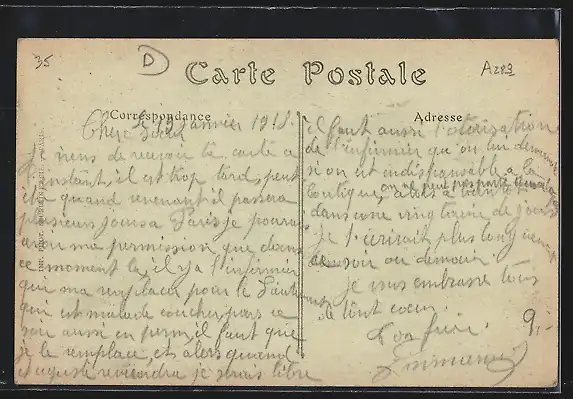 35
D
A283
Carte Postale
Correspondance
Adresse
le 19 Janvier 1918
Cher
Je viens de recevoir ta carte à
l'instant, il est trop tard, peut
être quand revenant il passera
plusieurs jours a Paris je pourrai
avoir ma permission que dans
ce moment la, il y a l'infirmier
qui ma remplacer pour le
qui est malade coucher, pars ce
soir aussi en perm, il faut que
je le remplace, et alors quand
Auguste reviendra je serais libre
il faut aussi l'autorisation
de l'infirmier qu'on lui demande
si on est indispensable a la
boutique,
on ne peut pas partir
dans une vingtaine de jours
Je t'écrirait plus longuement
ce soir ou demain.
Je vous embrasse tous
de tout coeur.
Ton frère
9,-